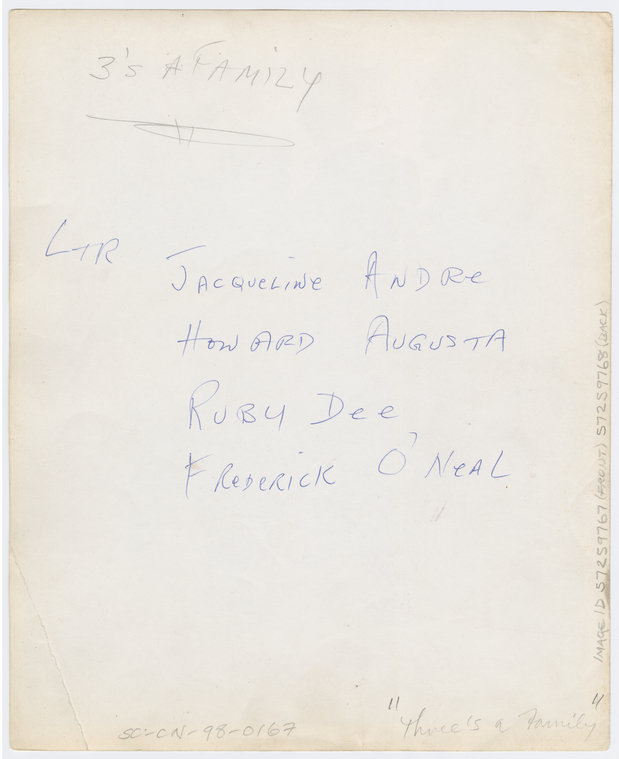 3's A FAMILY
LTR JACQUELINE ANDRE
HOWARD AUGUSTA
RUBY DEE
FREDERICK O'NEAL
IMAGE ID 57259767 (FRONT) 57259768 (BACK)
SC-CN-98-0167
"Three's a Family"